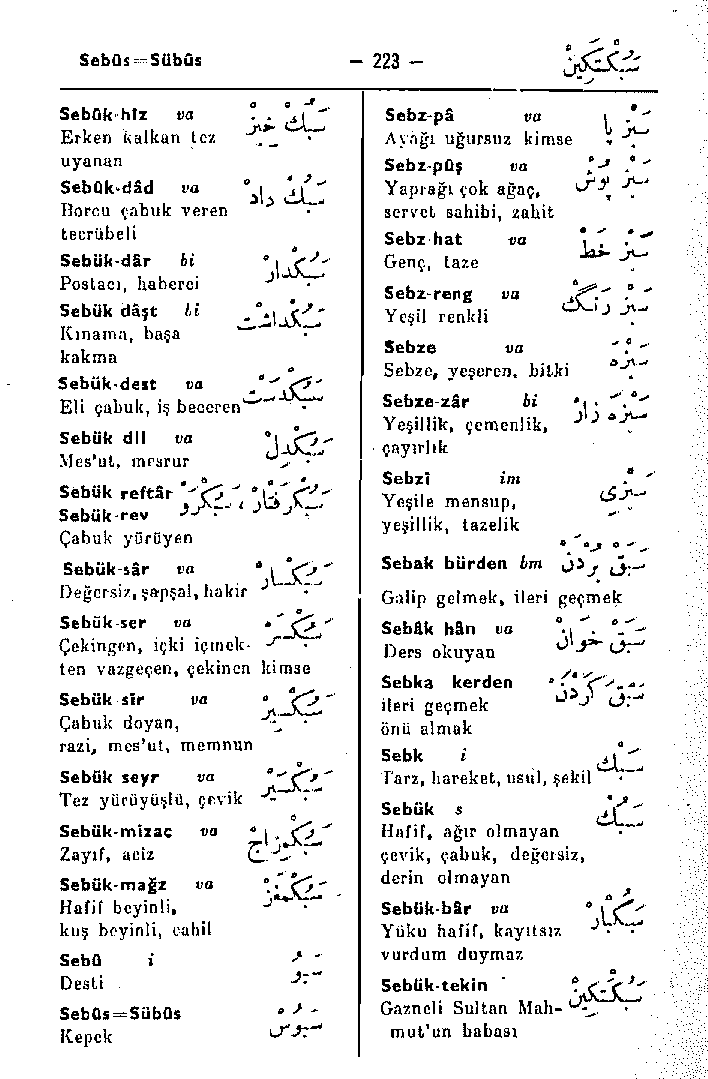 Sebûs=Sübûs — 223 — سَبُكْتَكِينْ
Sebük-hîz va سَبُكْ خِيزْ
Erken kalkan tez
uyanan
Sebük-dâd va سَبُكْ دادْ
Borcu çabuk veren
tecrübeli
Sebük-dâr bi سَبُكْدارْ
Postacı, haberci
Sebük dâşt bi سَبُكْداشْتْ
Kınama, başa
kakma
Sebük-dest va سَبُكْدَسْتْ
Eli çabuk, iş beceren
Sebük dil va سَبُكْدِلْ
Mes'ut, mesrur
Sebük reftâr سَبُكْرَفْتارْ ، سَبُكْرَوْ
Sebük-rev
Çabuk yürüyen
Sebük-sâr va سَبُكْسارْ
Değersiz, şapşal, hakir
Sebük-ser va سَبُكْسَرْ
Çekingen, içki içmek-
ten vazgeçen, çekinen kimse
Sebük sîr va سَبُكْسِيرْ
Çabuk doyan,
razi, mes'ut, memnun
Sebük seyr va سَبُكْسَيْرْ
Tez yürüyüşlü, çevik
Sebük-mizaç va سَبُكْمِزاجْ
Zayıf, aciz
Sebük-mağz va سَبُكْمَغْزْ
Hafif beyinli,
kuş beyinli, cahil
Sebû i سَبُو
Desti
Sebûs=Sübûs سَبُوسْ
Kepek
Sebz-pâ va سَبْزْ پا
Ayağı uğursuz kimse
Sebz-pûş va سَبْزْ پُوشْ
Yaprağı çok ağaç,
servet sahibi, zahit
Sebz hat va سَبْزْ خَطْ
Genç, taze
Sebz-reng va سَبْزْ رَنْگْ
Yeşil renkli
Sebze va سَبْزَهْ
Sebze, yeşeren, bitki
Sebze-zâr bi سَبْزَهْ زارْ
Yeşillik, çemenlik,
çayırlık
Sebzî im سَبْزِى
Yeşile mensup,
yeşillik, tazelik
Sebak bürden bm سَبَقْ بُرْدَنْ
Galip gelmek, ileri geçmek
Sebâk hân va سَبَقْ خوانْ
Ders okuyan
Sebka kerden سَبَقْ كَرْدَنْ
ileri geçmek
önü almak
Sebk i سَبْكْ
Tarz, hareket, usül, şekil
Sebük s سَبُكْ
Hafif, ağır olmayan
çevik, çabuk, değersiz,
derin olmayan
Sebük-bâr va سَبُكْبارْ
Yükü hafif, kayıtsız
vurdum duymaz
Sebük-tekin سَبُكْتَكِينْ
Gazneli Sultan Mah-
mut'un babası